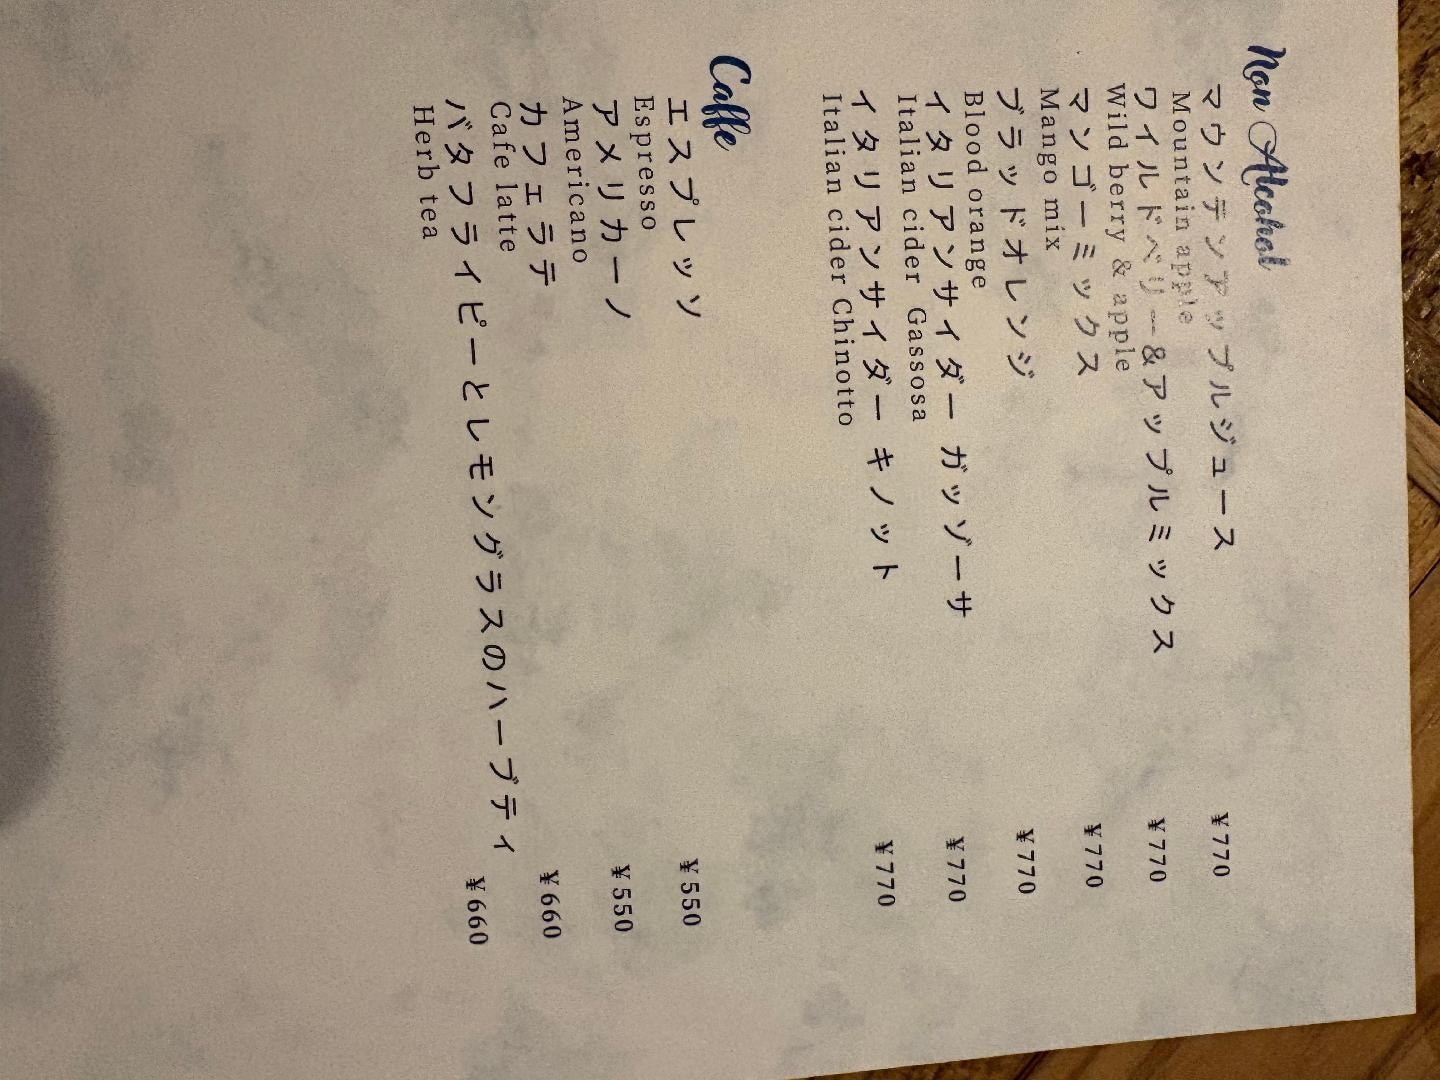 Non Alcohol
マウンテンアップルジュース ¥770
Mountain apple
ワイルドベリー&アップルミックス ¥770
Wild berry & apple
マンゴーミックス ¥770
Mango mix
ブラッドオレンジ ¥770
Blood orange
イタリアンサイダー ガッゾーサ ¥770
Italian cider Gassosa
イタリアンサイダー キノット ¥770
Italian cider Chinotto
Caffe
エスプレッソ ¥550
Espresso
アメリカーノ ¥550
Americano
カフェラテ ¥660
Cafe latte
バタフライピーとレモングラスのハーブティ ¥660
Herb tea